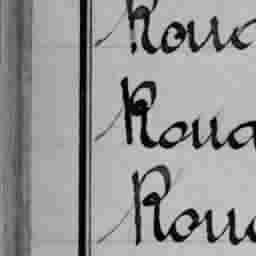 Roua
Roua
Rou